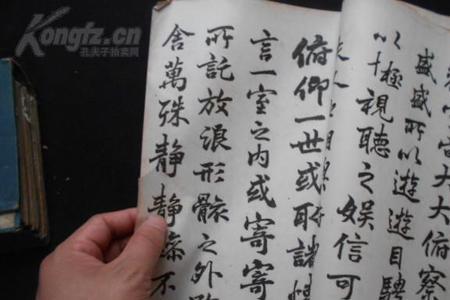 Kongfz.cn
孔夫子拍卖网
宙大大俯察
盛盛所以遊遊目騁
以極視聽之娛信可
俯仰一世或取諸
言一室之内或寄寄
所託放浪形骸之外
舍萬殊静静躁不